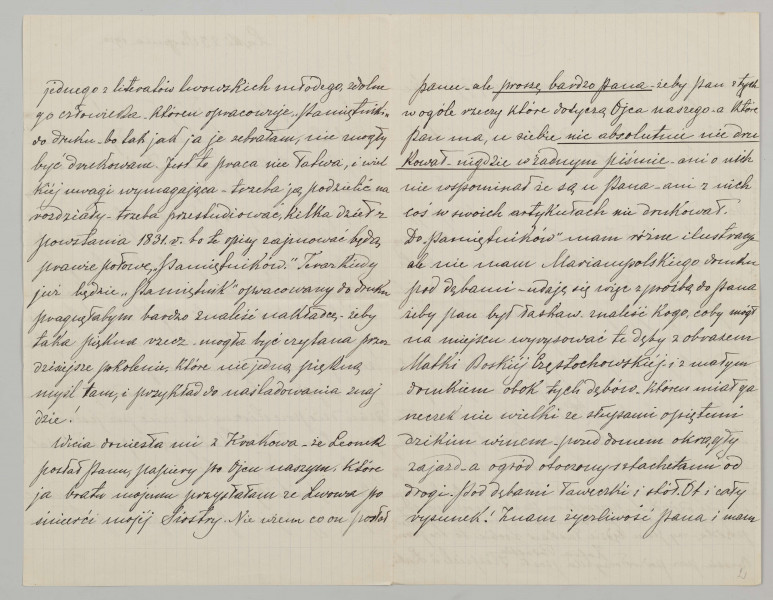 jednego z literatów lwowskich młodego, zdolne
go człowieka - któren opracowuje „Pamiętnik"
do druku - bo tak jak ja je zebrałam, nie mogły
być drukowane. Jest to praca nie łatwa, i wiel
kiéj uwagi wymagająca - trzeba ją podzielić na
rozdziały - trzeba przestudiować, kilka dzieł z
powstania 1831. r. bo te opisy zajmować będą
prawie połowę „Pamiętników." Teraz kiedy
już będzie „Pamiętnik" opracowany do druku
pragnęłabym bardzo znaleść nakładcę - żeby
taka piękna rzecz - mogła być czytana przez
dzisiejsze pokolenie, które nie jedną piękną
myśl tam, i przykład do naśladowania znaj
dzie!
Wicia doniosła mi z Krakowa - że Leonek
posłał Panu, papiery po Ojcu naszym, które
ja bratu mojemu przysłałam ze Lwowa po
śmierci mojéj Siostry. Nie wiem co on posłał
panu - ale proszę bardzo Pana - żeby pan z tych
w ogóle rzeczy które dotyczą Ojca naszego - a które
pan ma, u siebie nic absolutnie nie dru
kował - nigdzie w żadnym piśmie - ani o nich
nie wspominał że są u Pana - ani z nich
coś w swoich artykułach nie drukował.
Do „Pamiętników" mam różne ilustracye
ale nie mam Mariampolskiego domku
pod dębami - udaję się więc z prośbą do Pana
żeby pan był łaskaw znaleść kogo, coby mógł
na miejscu wyrysować te dęby z obrazem
Matki Boskiéj Częstochowskiéj, i z małym
domkiem obok tych dębów - któren miał ga
neczek nie wielki ze słupami opiętemi
dzikim winem - przed domem okrągły
zajazd - a ogród otoczony sztachetami od
drogi. Pod dębami ławeczki i stół. Ot i cały
rysunek! Znam życzliwość Pana i mam